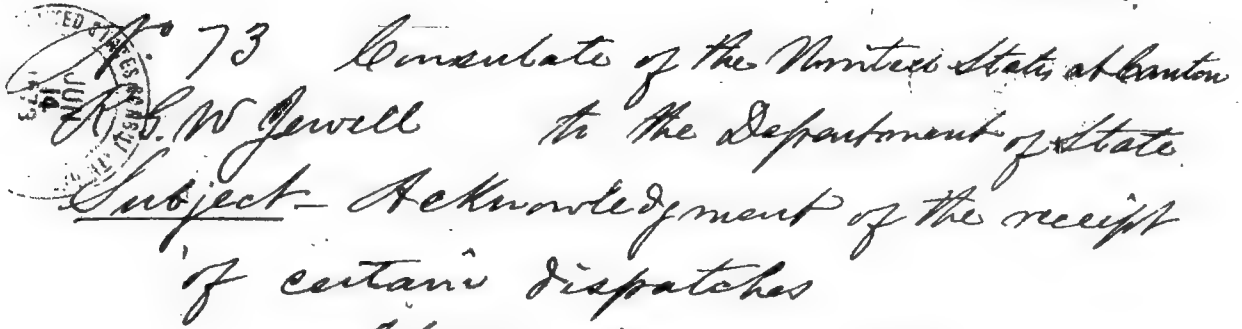 No 73 Consulate of the United States at Canton
R. G. W Jewell to the Department of State
Subject - Acknowledgment of the receipt
of certain dispatches
UNITED STATES
JUN
14